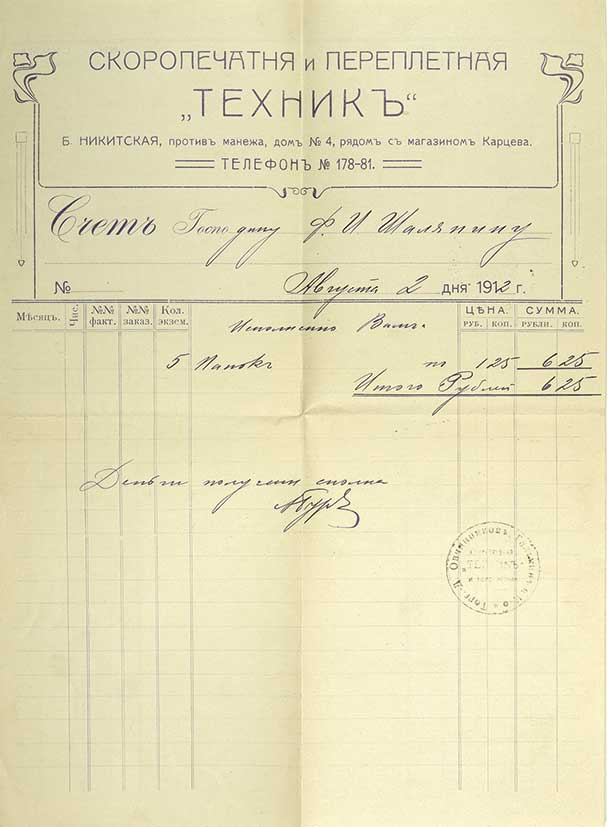 СКОРОПЕЧАТНЯ и ПЕРЕПЛЕТНАЯ
„ТЕХНИКЪ“
Б. НИКИТСКАЯ, противъ манежа, домъ № 4, рядомъ съ магазиномъ Карцева.
ТЕЛЕФОНЪ № 178-81.
Счетъ Господину Ф. И Шаляпину
№ Августа 2 дня 1912 г.
Мѣсяцъ. Чис. №№ факт. №№ заказ. Кол. экзем. Исполненно Вамъ: ЦѢНА. РУБ. КОП. СУММА. РУБЛИ. КОП.
5 Папокъ по 1 25 6 25
Итого Рублей 6 25
Деньги получены сполна
ТЕХНИКЪ